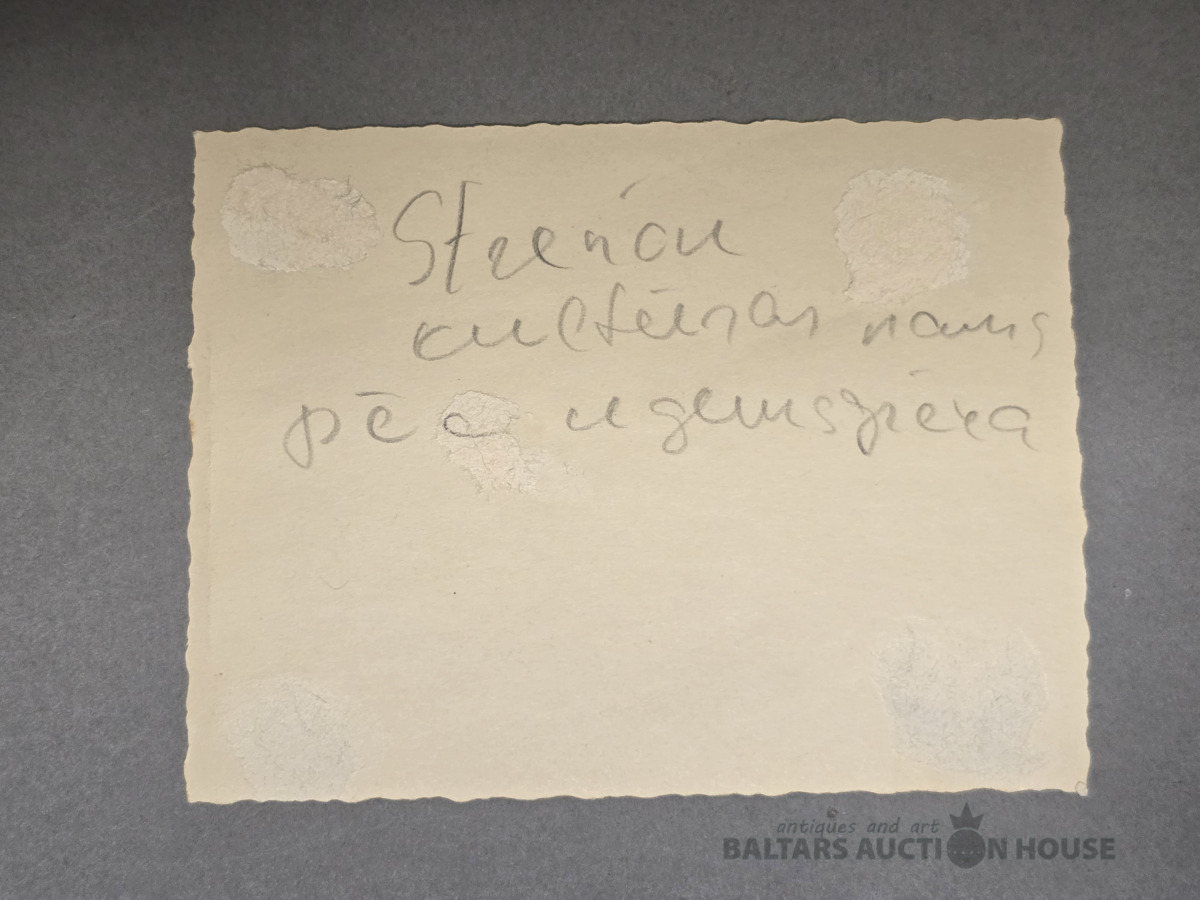 Strenču
kultūras nams
pēc ugunsgrēka
antiques and art
BALTARS AUCTION HOUSE